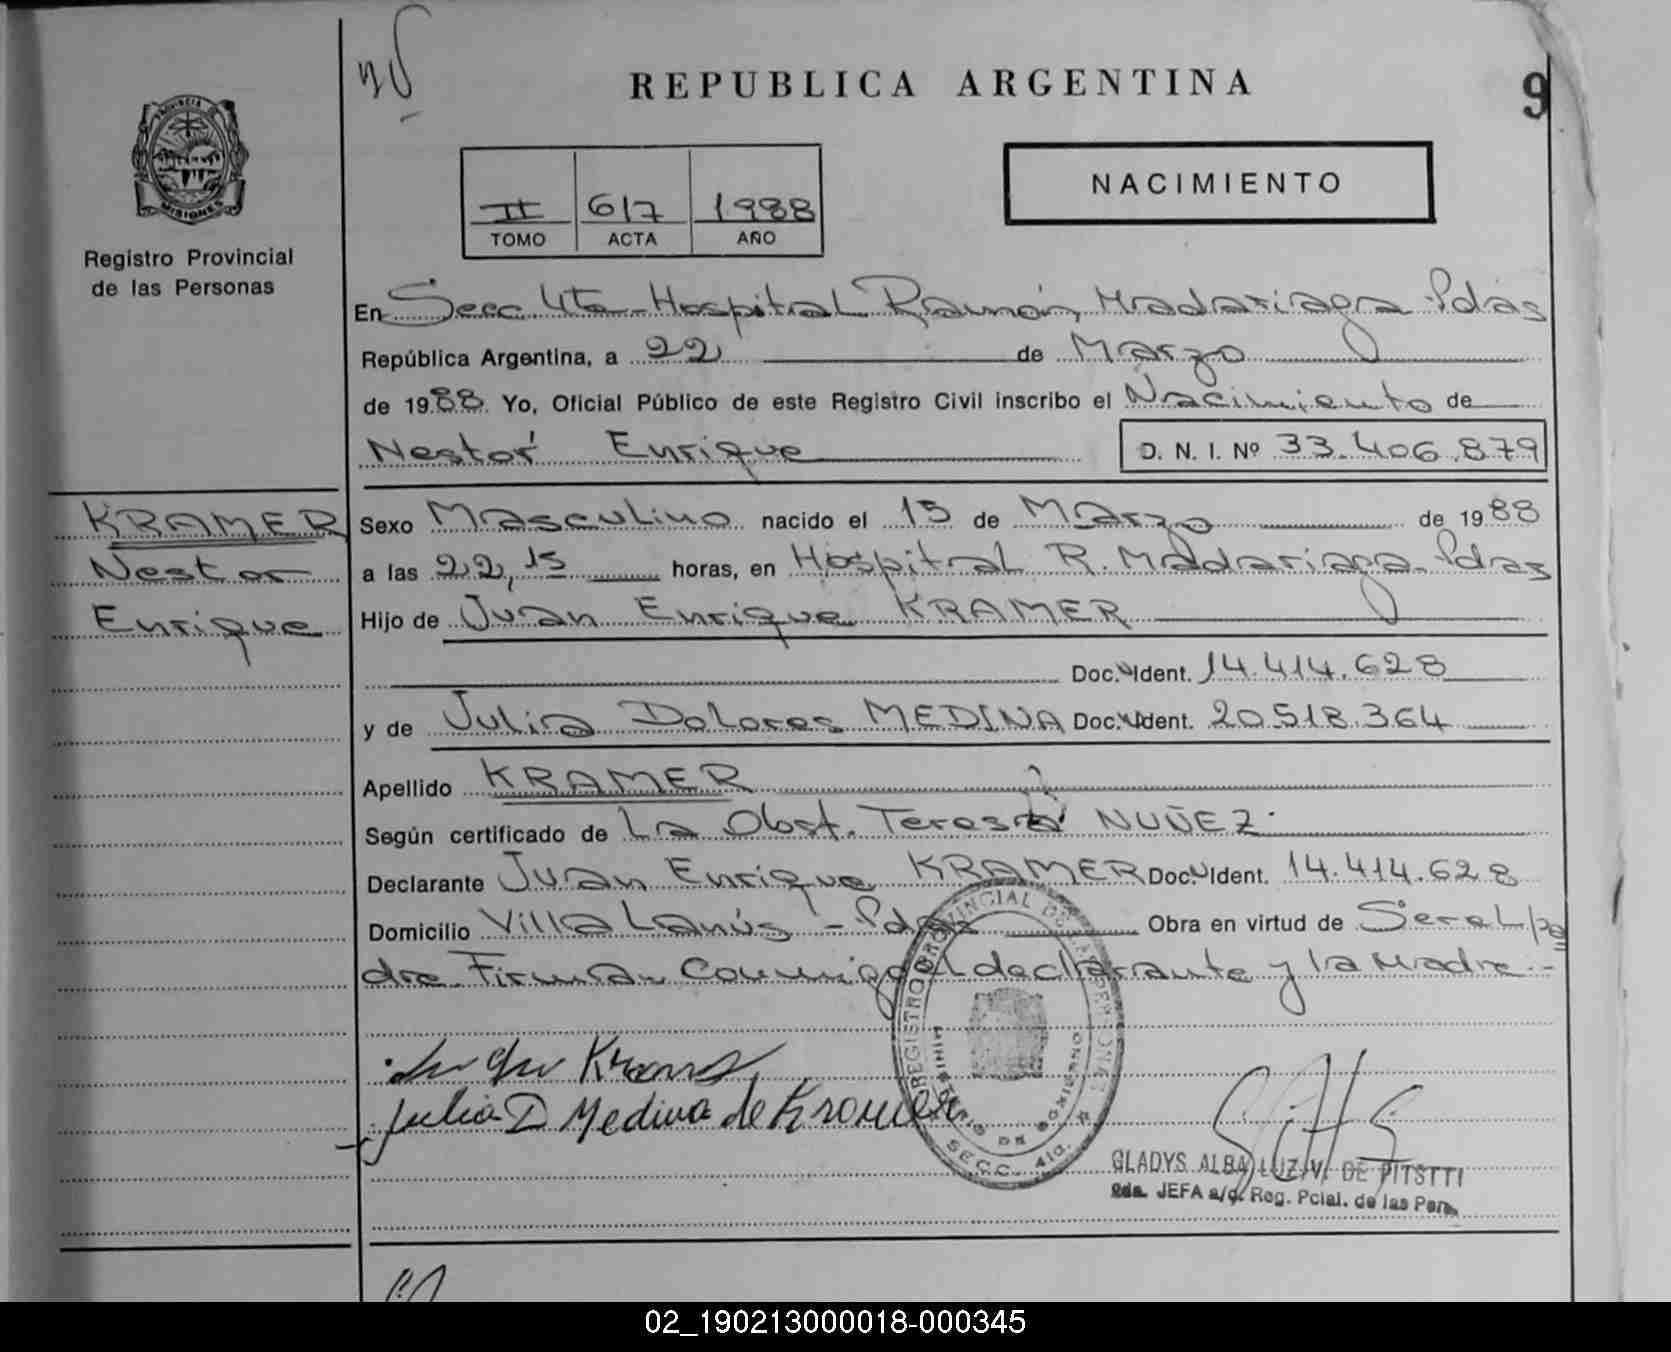 REPUBLICA ARGENTINA
9
PROVINCIA DE
MISIONES
Registro Provincial
de las Personas
II 617 1988
TOMO ACTA AÑO
NACIMIENTO
En Secc 4ta-Hospital Ramón Madariaga-Pdas
República Argentina, a 22 de Marzo
de 1988. Yo, Oficial Público de este Registro Civil inscribo el Nacimiento de
Nestor Enrique D. N. I. Nº 33.406.879
KRAMER
Nestor
Enrique
Sexo Masculino nacido el 15 de Marzo de 1988
a las 22,15 horas, en Hospital R. Madariaga-Pdas
Hijo de Juan Enrique KRAMER
Doc. Ident. 14.414.628
y de Julia Dolores MEDINA Doc. Ident. 20.518.364
Apellido KRAMER
Según certificado de La Obst. Teresa NUÑEZ.
Declarante Juan Enrique KRAMER Doc. Ident. 14.414.628
Domicilio Villa Lanús - Pdas Obra en virtud de Ser el pa
dre. Firman Conmigo el declarante y la Madre.-
REGISTRO PROVINCIAL DE LAS PERSONAS
MINISTERIO DE GOBIERNO
SECC. 4ta.
Julia D Medina de Kramer
GLADYS ALBA LUZ V. DE PITSTTI
2da. JEFA a/c. Reg. Pcial. de las Pers.
02_190213000018-000345